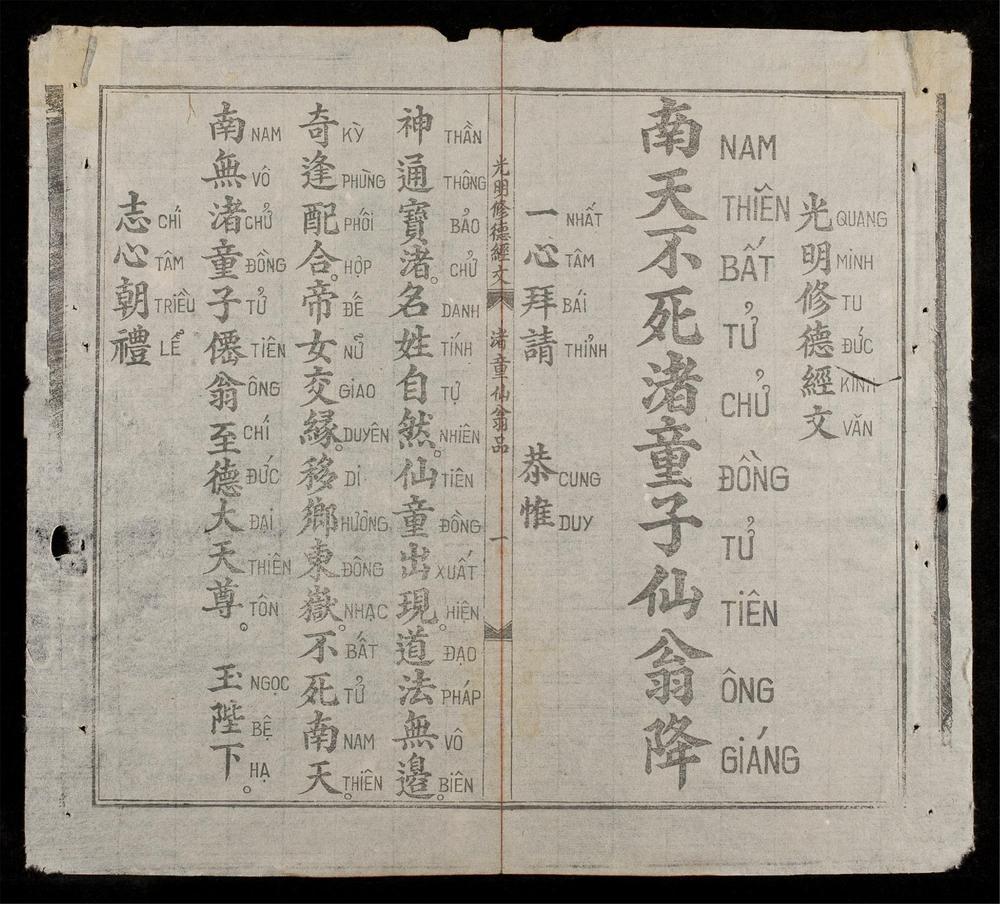 光明修德經文
QUANG MINH TU ĐỨC KINH VĂN
南天不死渚童子仙翁降
NAM THIÊN BẤT TỬ CHỬ ĐỒNG TỬ TIÊN ÔNG GIÁNG
一心拜請 恭惟
NHẤT TÂM BÁI THỈNH CUNG DUY
光明修德經文 渚童仙翁品 一
神通寶渚。名姓自然。仙童出現。道法無邊。
THẦN THÔNG BẢO CHỬ DANH TÍNH TỰ NHIÊN TIÊN ĐỒNG XUẤT HIỆN ĐẠO PHÁP VÔ BIÊN
奇逢配合。帝女交緣。移鄉東嶽。不死南天。
KỲ PHÙNG PHỐI HỘP ĐẾ NỮ GIAO DUYÊN DI HƯỜNG ĐÔNG NHẠC BẤT TỬ NAM THIÊN
南無渚童子僊翁至德大天尊。 玉陛下。
NAM VÔ CHỬ ĐỒNG TỬ TIÊN ÔNG CHÍ ĐỨC ĐẠI THIÊN TÔN NGỌC BỆ HẠ
志心朝禮
CHÍ TÂM TRIỀU LỄ